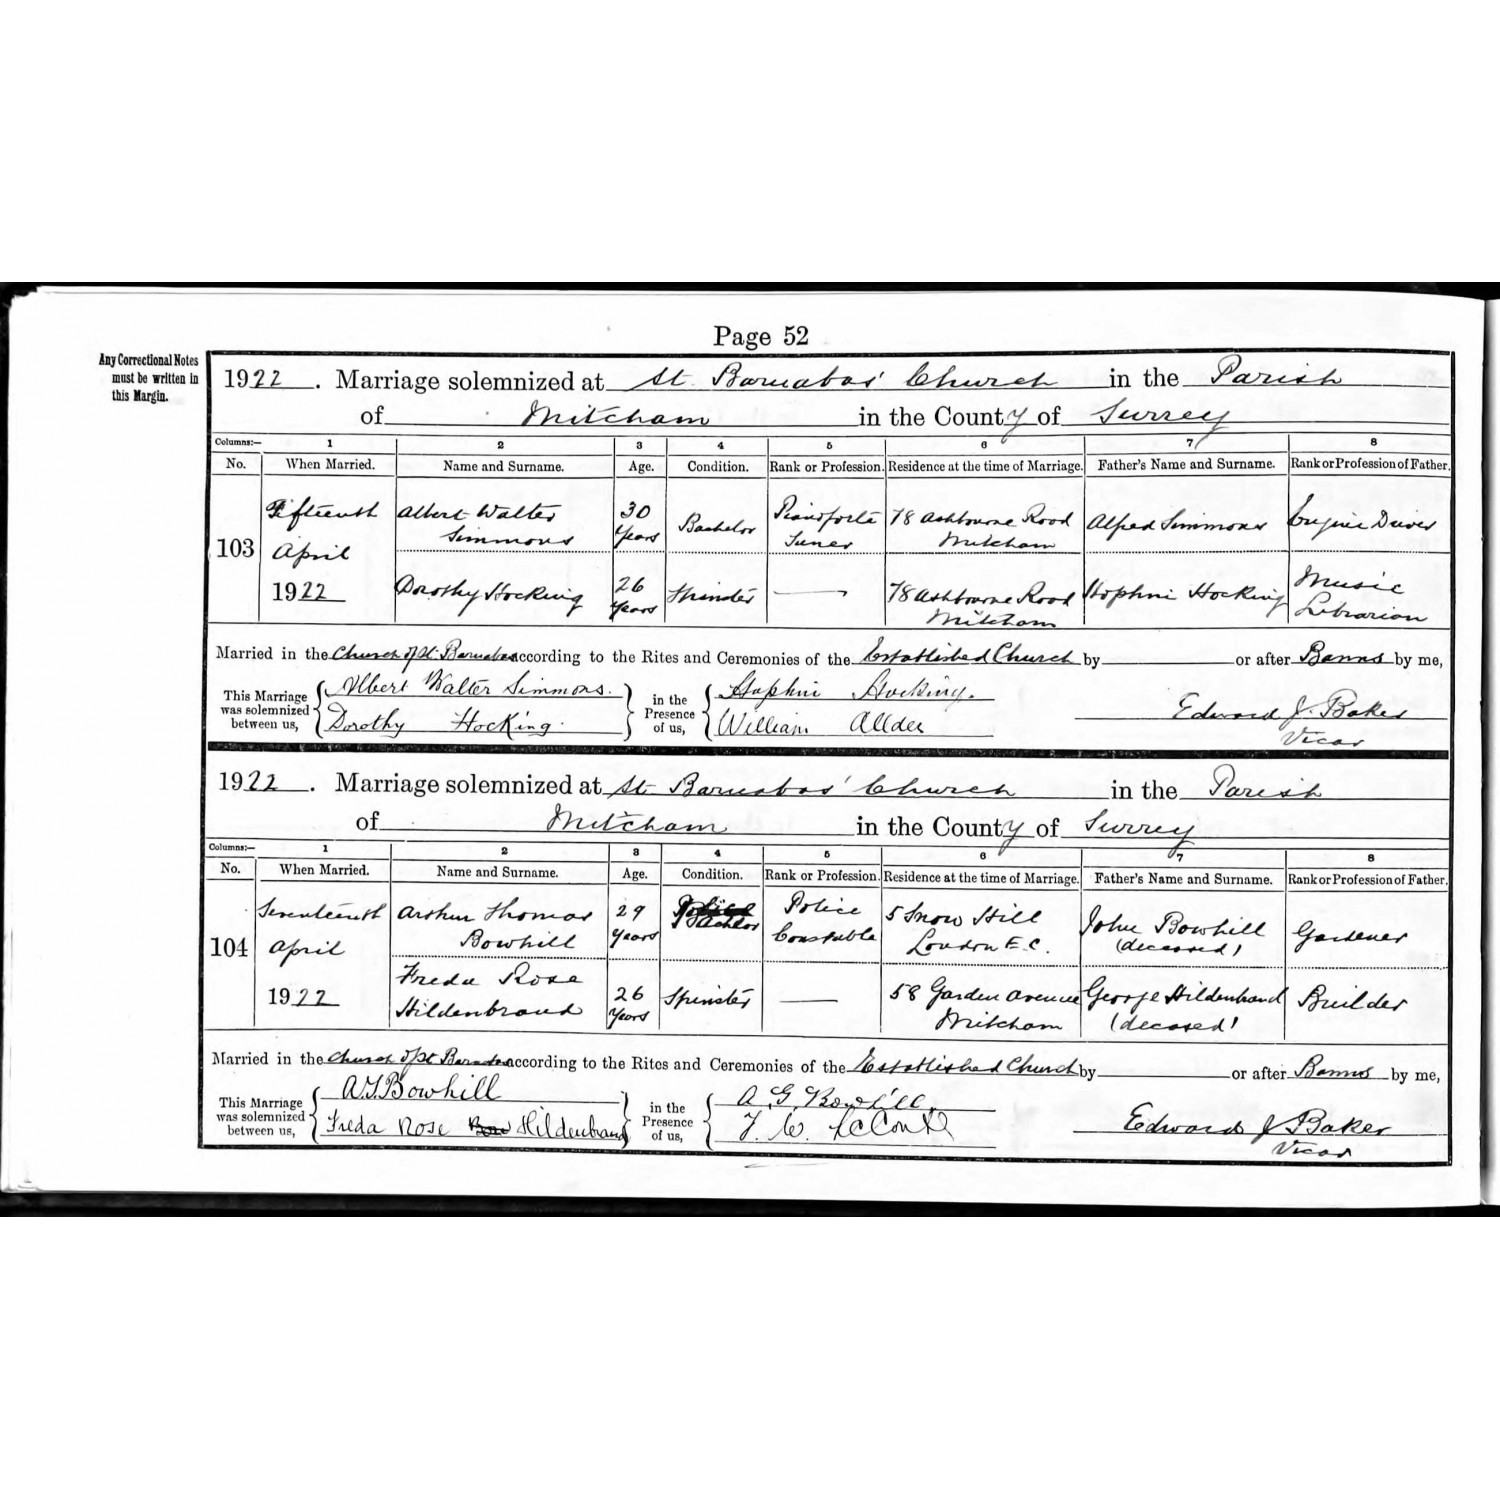 Page 52
Any Correctional Notes
must be written in
this Margin.
1922. Marriage solemnized at St Barnabas' Church in the Parish
of Mitcham in the County of Surrey
Columns:— 1 2 3 4 5 6 7 8
No. When Married. Name and Surname. Age. Condition. Rank or Profession. Residence at the time of Marriage. Father's Name and Surname. Rank or Profession of Father.
Fifteenth Albert Walter 30 Bachelor Pianoforte 78 Ashbourne Road Alfred Simmons Engine Driver
103 April Simmons Years Tuner Mitcham
1922 Dorothy Hocking 26 Spinster — 78 Ashbourne Road Hophni Hocking Music
Years Mitcham Librarian
Married in the Church of St. Barnabas according to the Rites and Ceremonies of the Established Church by or after Banns by me,
This Marriage
was solemnized
between us,
Albert Walter Simmons.
Dorothy Hocking.
in the
Presence
of us,
Hophni Hocking.
William Allder
Edward J. Baker
Vicar
1922. Marriage solemnized at St Barnabas' Church in the Parish
of Mitcham in the County of Surrey
Columns:— 1 2 3 4 5 6 7 8
No. When Married. Name and Surname. Age. Condition. Rank or Profession. Residence at the time of Marriage. Father's Name and Surname. Rank or Profession of Father.
Seventeenth Arthur Thomas 29 Bachelor Police 5 Snow Hill John Bowhill Gardener
104 April Bowhill Years Constable London E.C. (deceased)
1922 Freda Rose 26 Spinster — 58 Garden Avenue George Hildenbrand Builder
Hildenbrand Years Mitcham (deceased)
Married in the Church of St Barnabas according to the Rites and Ceremonies of the Established Church by or after Banns by me,
This Marriage
was solemnized
between us,
A.T. Bowhill
Freda Rose Hildenbrand
in the
Presence
of us,
A. G. Bowhill.
F. W.
Edward J Baker
Vicar